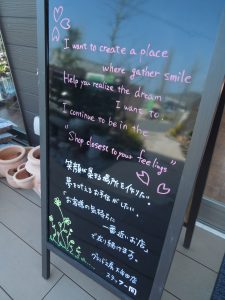 I want to create a place
where gather smile
Help you realize the dream
I want to...
I continue to be in the
"Shop closest to your feelings"
笑顔が集う場所を作りたい
夢を叶えるお手伝がしたい
お客様の気持ちに
一番近いお店
で在り続けます。
スタッフ一同